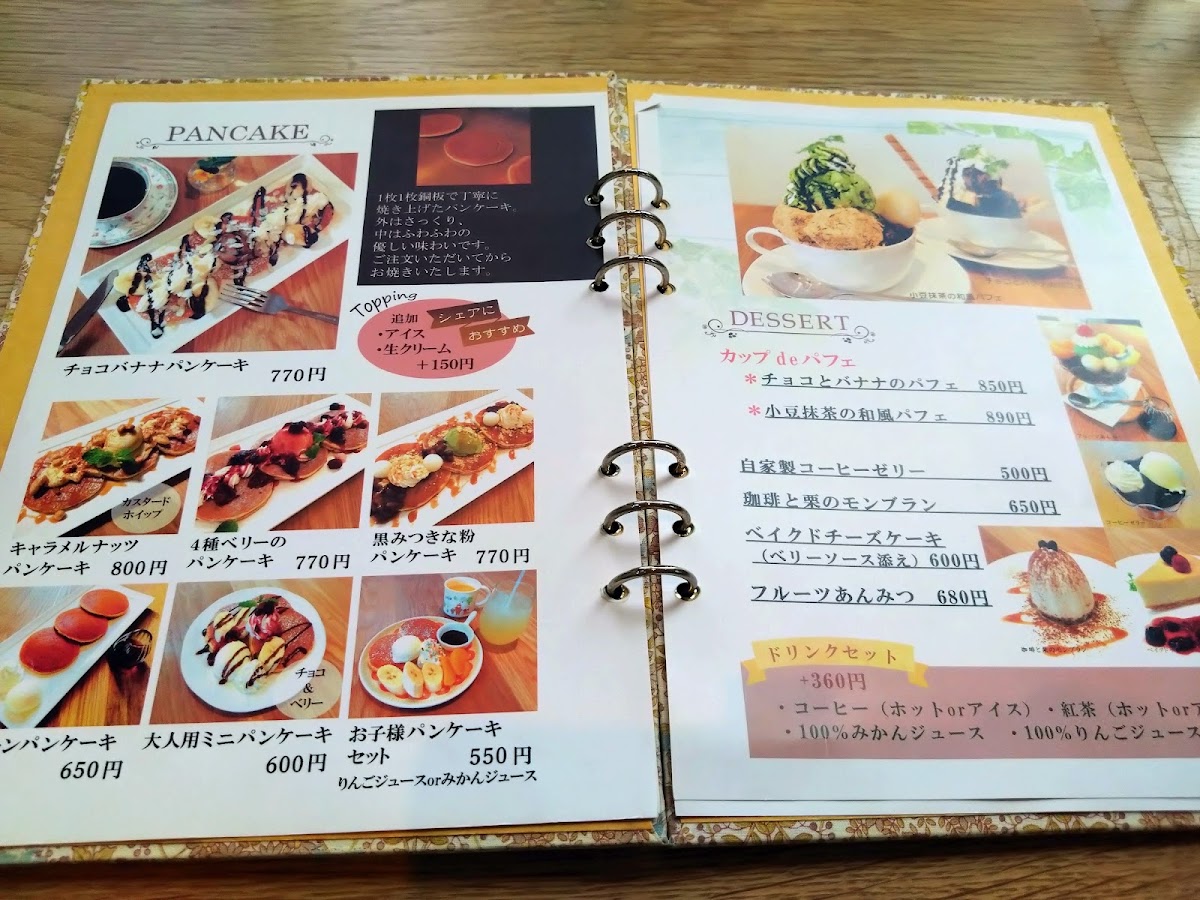 PANCAKE
1枚1枚銅板で丁寧に
焼き上げたパンケーキ。
外はさっくり、
中はふわふわの
優しい味わいです。
ご注文いただいてから
お焼きいたします。
Topping
追加
・アイス
・生クリーム
+150円
シェアに
おすすめ
チョコバナナパンケーキ
770円
カスタード
ホイップ
キャラメルナッツ
パンケーキ 800円
4種ベリーの
パンケーキ 770円
黒みつきな粉
パンケーキ 770円
ンパンケーキ
650円
チョコ
&
ベリー
大人用ミニパンケーキ
600円
お子様パンケーキ
セット 550円
りんごジュースorみかんジュース
小豆抹茶の和風パフェ
DESSERT
カップdeパフェ
*チョコとバナナのパフェ 850円
*小豆抹茶の和風パフェ 890円
自家製コーヒーゼリー 500円
珈琲と栗のモンブラン 650円
ベイクドチーズケーキ
（ベリーソース添え）600円
フルーツあんみつ 680円
珈琲と栗のモンブラン
ドリンクセット
+360円
・コーヒー（ホットorアイス）・紅茶（ホットorア
・100%みかんジュース ・100%りんごジュース